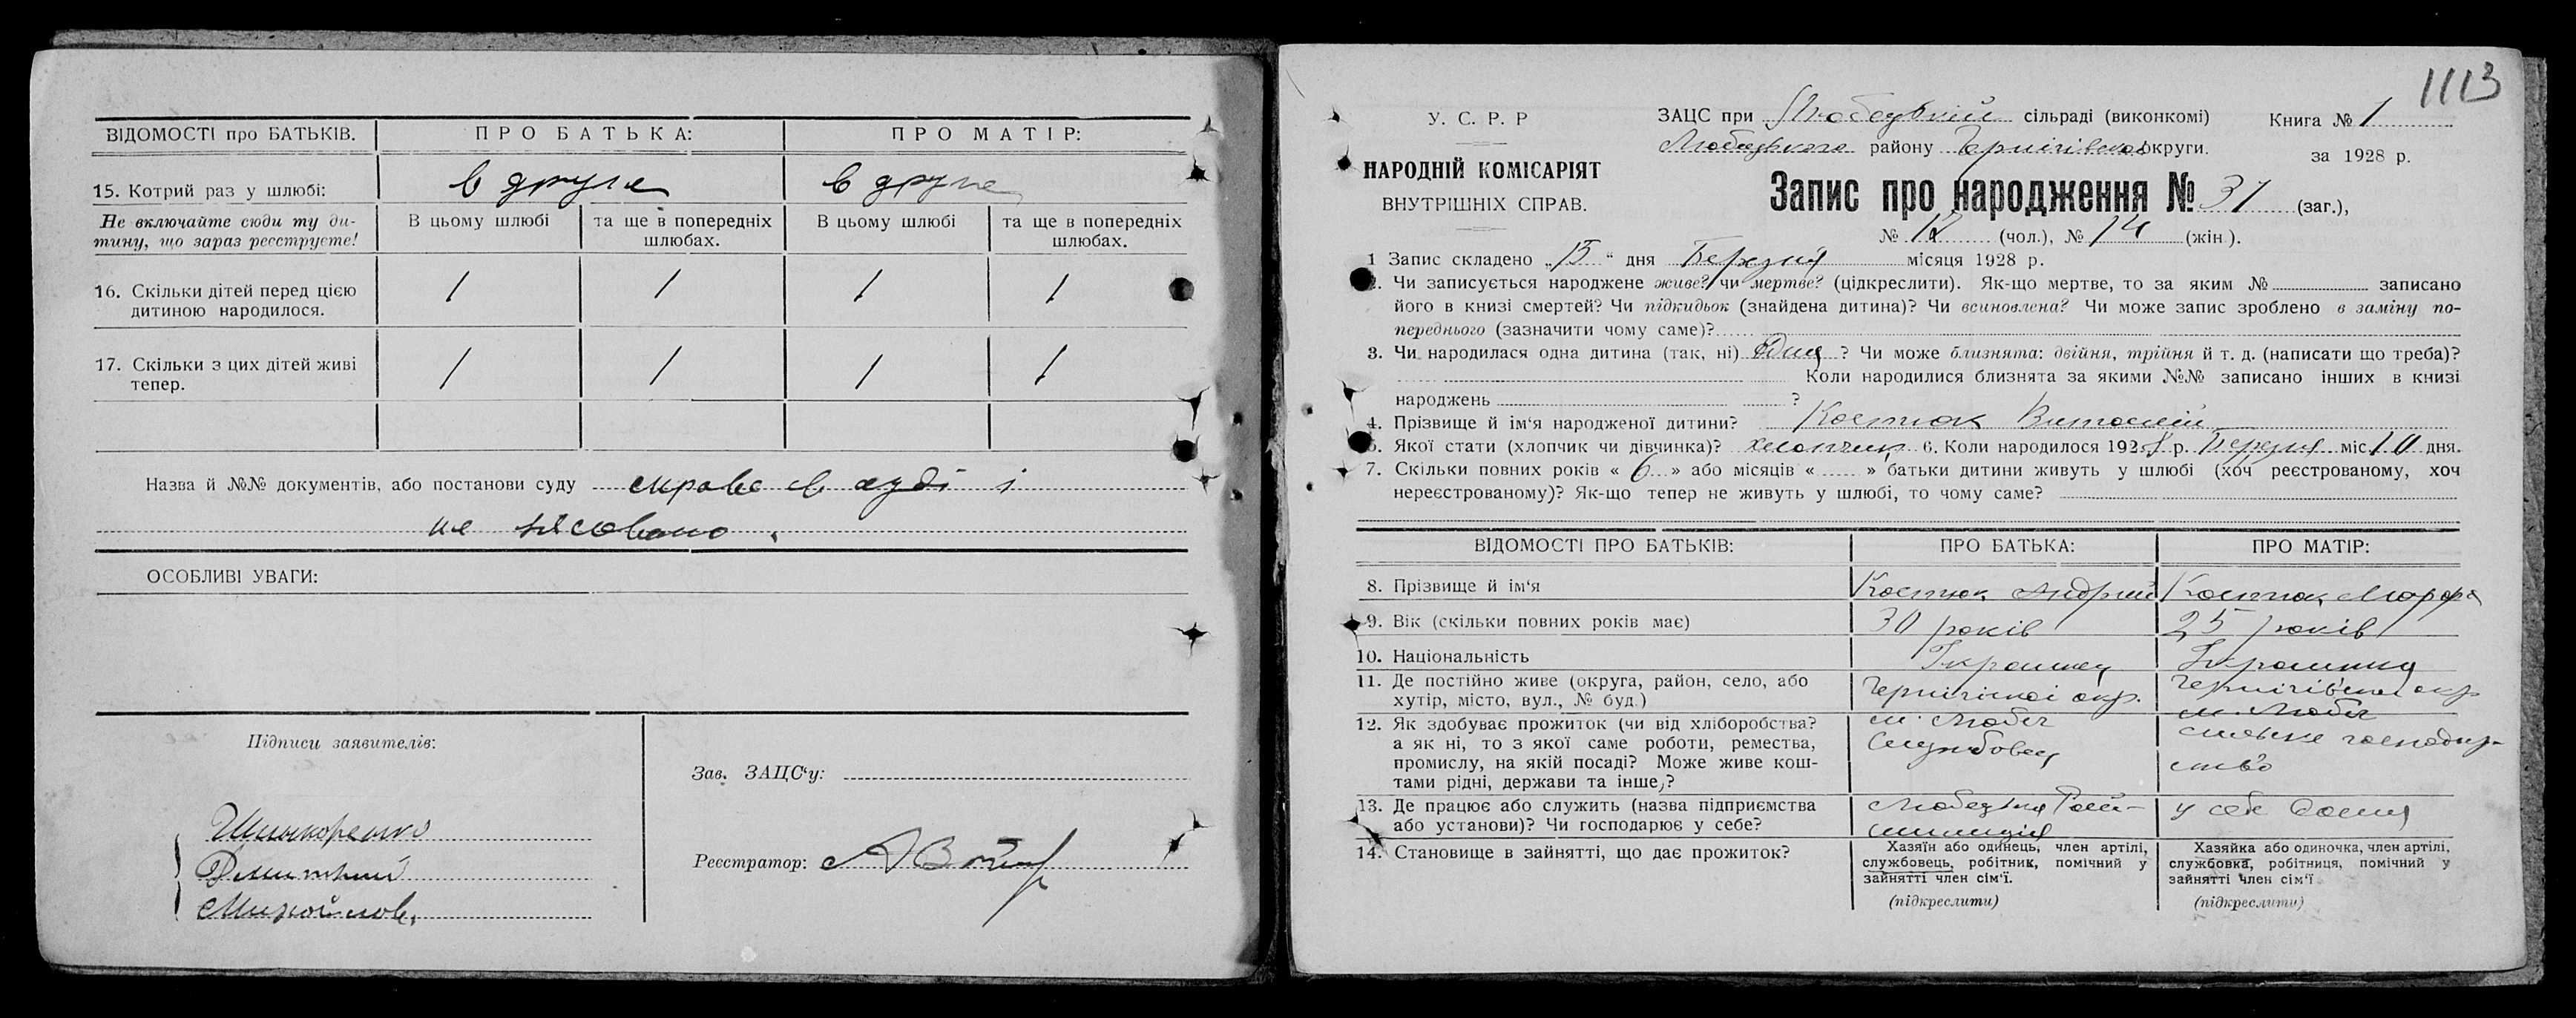 ВІДОМОСТІ про БАТЬКІВ. ПРО БАТЬКА: ПРО МАТІР:
15. Котрий раз у шлюбі: в друге в друге
Не включайте сюди ту ди- В цьому шлюбі та ще в попередніх В цьому шлюбі та ще в попередніх
тину, що зараз реєструєте! шлюбах. шлюбах.
16. Скільки дітей перед цією / / / /
дитиною народилося.
17. Скільки з цих дітей живі / / / /
тепер.
Назва й №№ документів, або постанови суду справа в суді і
не
ОСОБЛИВІ УВАГИ:
Підписи заявителів:
Зав. ЗАЦС‘у:
Дмитрий
Михайлов.
Реєстратор:
1113
У. С. Р. Р
НАРОДНІЙ КОМІСАРІЯТ
ВНУТРІШНІХ СПРАВ.
ЗАЦС при Любецькій сільраді (виконкомі) Книга № 1
Любецького району Чернігівської округи. за 1928 р.
Запис про народження № 31 (заг.),
№ 17 (чол.), № 14 (жін.).
1 Запис складено „15“ дня Березня місяця 1928 р.
2. Чи записується народжене живе? чи мертве? (цідкреслити). Як-що мертве, то за яким № записано
його в книзі смертей? Чи підкидьок (знайдена дитина)? Чи всиновлена? Чи може запис зроблено в заміну по-
переднього (зазначити чому саме)?
3. Чи народилася одна дитина (так, ні) одна ? Чи може близнята: двійня, трійня й т. д. (написати що треба)?
Коли народилися близнята за якими №№ записано інших в книзі
народжень ?
4. Прізвище й ім‘я народженої дитини? Костюк Виталий
5. Якої стати (хлопчик чи дівчинка)? хлопчик 6. Коли народилося 1928 р. Березня міс 10 дня.
7. Скільки повних років « 6 » або місяців « » батьки дитини живуть у шлюбі (хоч реєстрованому, хоч
нереєстрованому)? Як-що тепер не живуть у шлюбі, то чому саме?
ВІДОМОСТІ ПРО БАТЬКІВ: ПРО БАТЬКА: ПРО МАТІР:
8. Прізвище й ім‘я Костюк Андрий Костюк Марфа
9. Вік (скільки повних років має) 30 років 25 років
10. Національність Українец Українка
11. Де постійно живе (округа, район, село, або Чернігівскої окр. Чернігівскої окр
хутір, місто, вул., № буд.) м. Любеч м. Любеч
12. Як здобуває прожиток (чи від хліборобства? Службовец сільське господар-
а як ні, то з якої саме роботи, ремества, ство
промислу, на якій посаді? Може живе кош-
тами рідні, держави та інше,?
13. Де працює або служить (назва підприємства Любецька Рай- у себе дома
або установи)? Чи господарює у себе? милиция
14. Становище в зайнятті, що дає прожиток? Хазяїн або одинець, член артілі, Хазяйка або одиночка, член артілі,
службовець, робітник, помічний у службовка, робітниця, помічний у
зайнятті член сім‘ї. зайнятті член сім‘ї
(підкреслити) (підкреслити)